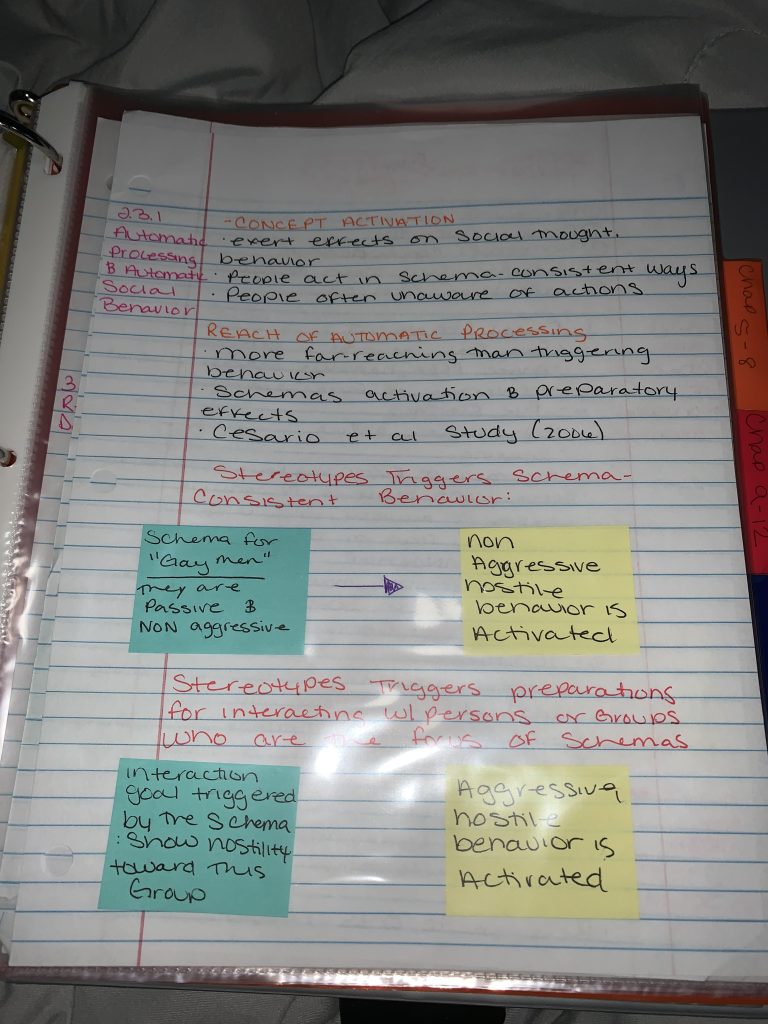 2.3.1
Automatic
Processing
& Automatic
Social
Behavior
3
R
D
-CONCEPT ACTIVATION
· exert effects on Social thought.
behavior
· People act in schema-consistent ways
· People often unaware of actions
REACH OF AUTOMATIC PROCESSING
· more far-reaching than triggering
behavior
· Schemas activation & preparatory
effects
· Cesario et al Study (2006)
Stereotypes Triggers Schema-
Consistent Behavior:
Schema for
"Gay men"
They are
Passive &
NON aggressive
non
Aggressive
hostile
behavior is
Activated
Stereotypes Triggers preparations
for interacting w/ persons or Groups
who are the focus of Schemas
interaction
goal triggered
by the Schema
: Show hostility
toward This
Group
Aggressive
hostile
behavior is
Activated
Chap 5-8
Chap 9-12